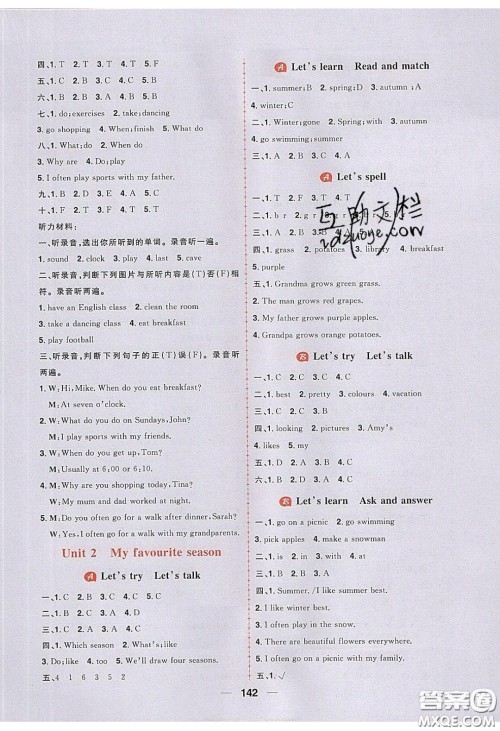 四、1. T 2. T 3. T 4. T
五、1. C 2. C 3. C 4. C
六、1. B 2. C 3. A 4. B
八、1. do;exercises 2. take;dancing
3. go shopping 4. When;finish 5. What;do
九、1. When do 2. What do
3. Why are 4. Do;play
5. I often play sports with my father.
九、1. D 2. E 3. C 4. B 5. A
十、1. F 2. F 3. T 4. F 5. T
听力材料:
一、听录音,选出你所听到的单词。录音听一遍。
1. sound 2. clock 3. clean 4. place
二、听录音,判断下列图片与所听内容是(T)否(F)相符。录音听两遍。
1. have an English class 2. clean the room
3. take a dancing class 4. eat breakfast
5. play football
三、听录音,判断下列句子的正(T)误(F)。录音听两遍。
1. W: Hi, Mike. When do you eat breakfast?
M: At seven o'clock.
2. W: What do you do on Sundays, John?
M: I play sports with my friends.
3. W: When do you get up, Tom?
M: Usually at 6:00 or 6:10.
4. M: Why are you shopping today, Tina?
W: My mum and dad worked last night.
5. M: Do you often go for a walk after dinner, Sarah?
W: Yes. I often go for a walk with my grandparents.
Unit 2 My favourite season
A Let's try Let's talk
一、1. C 2. B 3. C 4. A
二、1. D 2. C 3. A 4. B
三、1. C 2. A 3. A 4. C
四、1. Which season 2. What;like
3. Do;like 4. so 5. We'll draw four seasons.
五、4 1 6 3 5 2
A Let's learn Read and match
一、1. summer;B 2. spring;D 3. autumn ;A
4. winter;C
二、1. A 2. B 3. C 4. A 5. C
三、1. D 2. B 3. E 4. C 5. A
A Let's spell
一、1. T 2. F 3. F 4. T
互助文栏
zdzuoye.com
四、1. grass 2. potatoes 3. library 4. breakfast
5. purple
五、1. Grandma grows green grass.
2. The man grows red grapes.
3. My father grows purple apples.
4. Grandpa grows orange potatoes.
B Let's try Let's talk
一、1. C 2. A 3. A 4. C
二、1. best 2. pretty 3. colours 4. vacation
三、1. A 2. A 3. B 4. C 5. B
四、1. looking 2. pictures 3. Amy's
4. likes 5. my
五、1. D 2. A 3. C 4. B
B Let's learn Ask and answer
一、1. go on a picnic 2. go swimming
3. pick apples 4. make a snowman
二、1. A 2. B 3. C 4. B 5. A
三、1. A 2. A 3. B 4. C 5. A
四、1. Summer./I like summer best.
2. I like winter best.
3. I often play in the snow.
4. There are beautiful flowers everywhere.
5. I often go on a picnic with my family.
五、1.√
142
答案圈
MXQE.COM